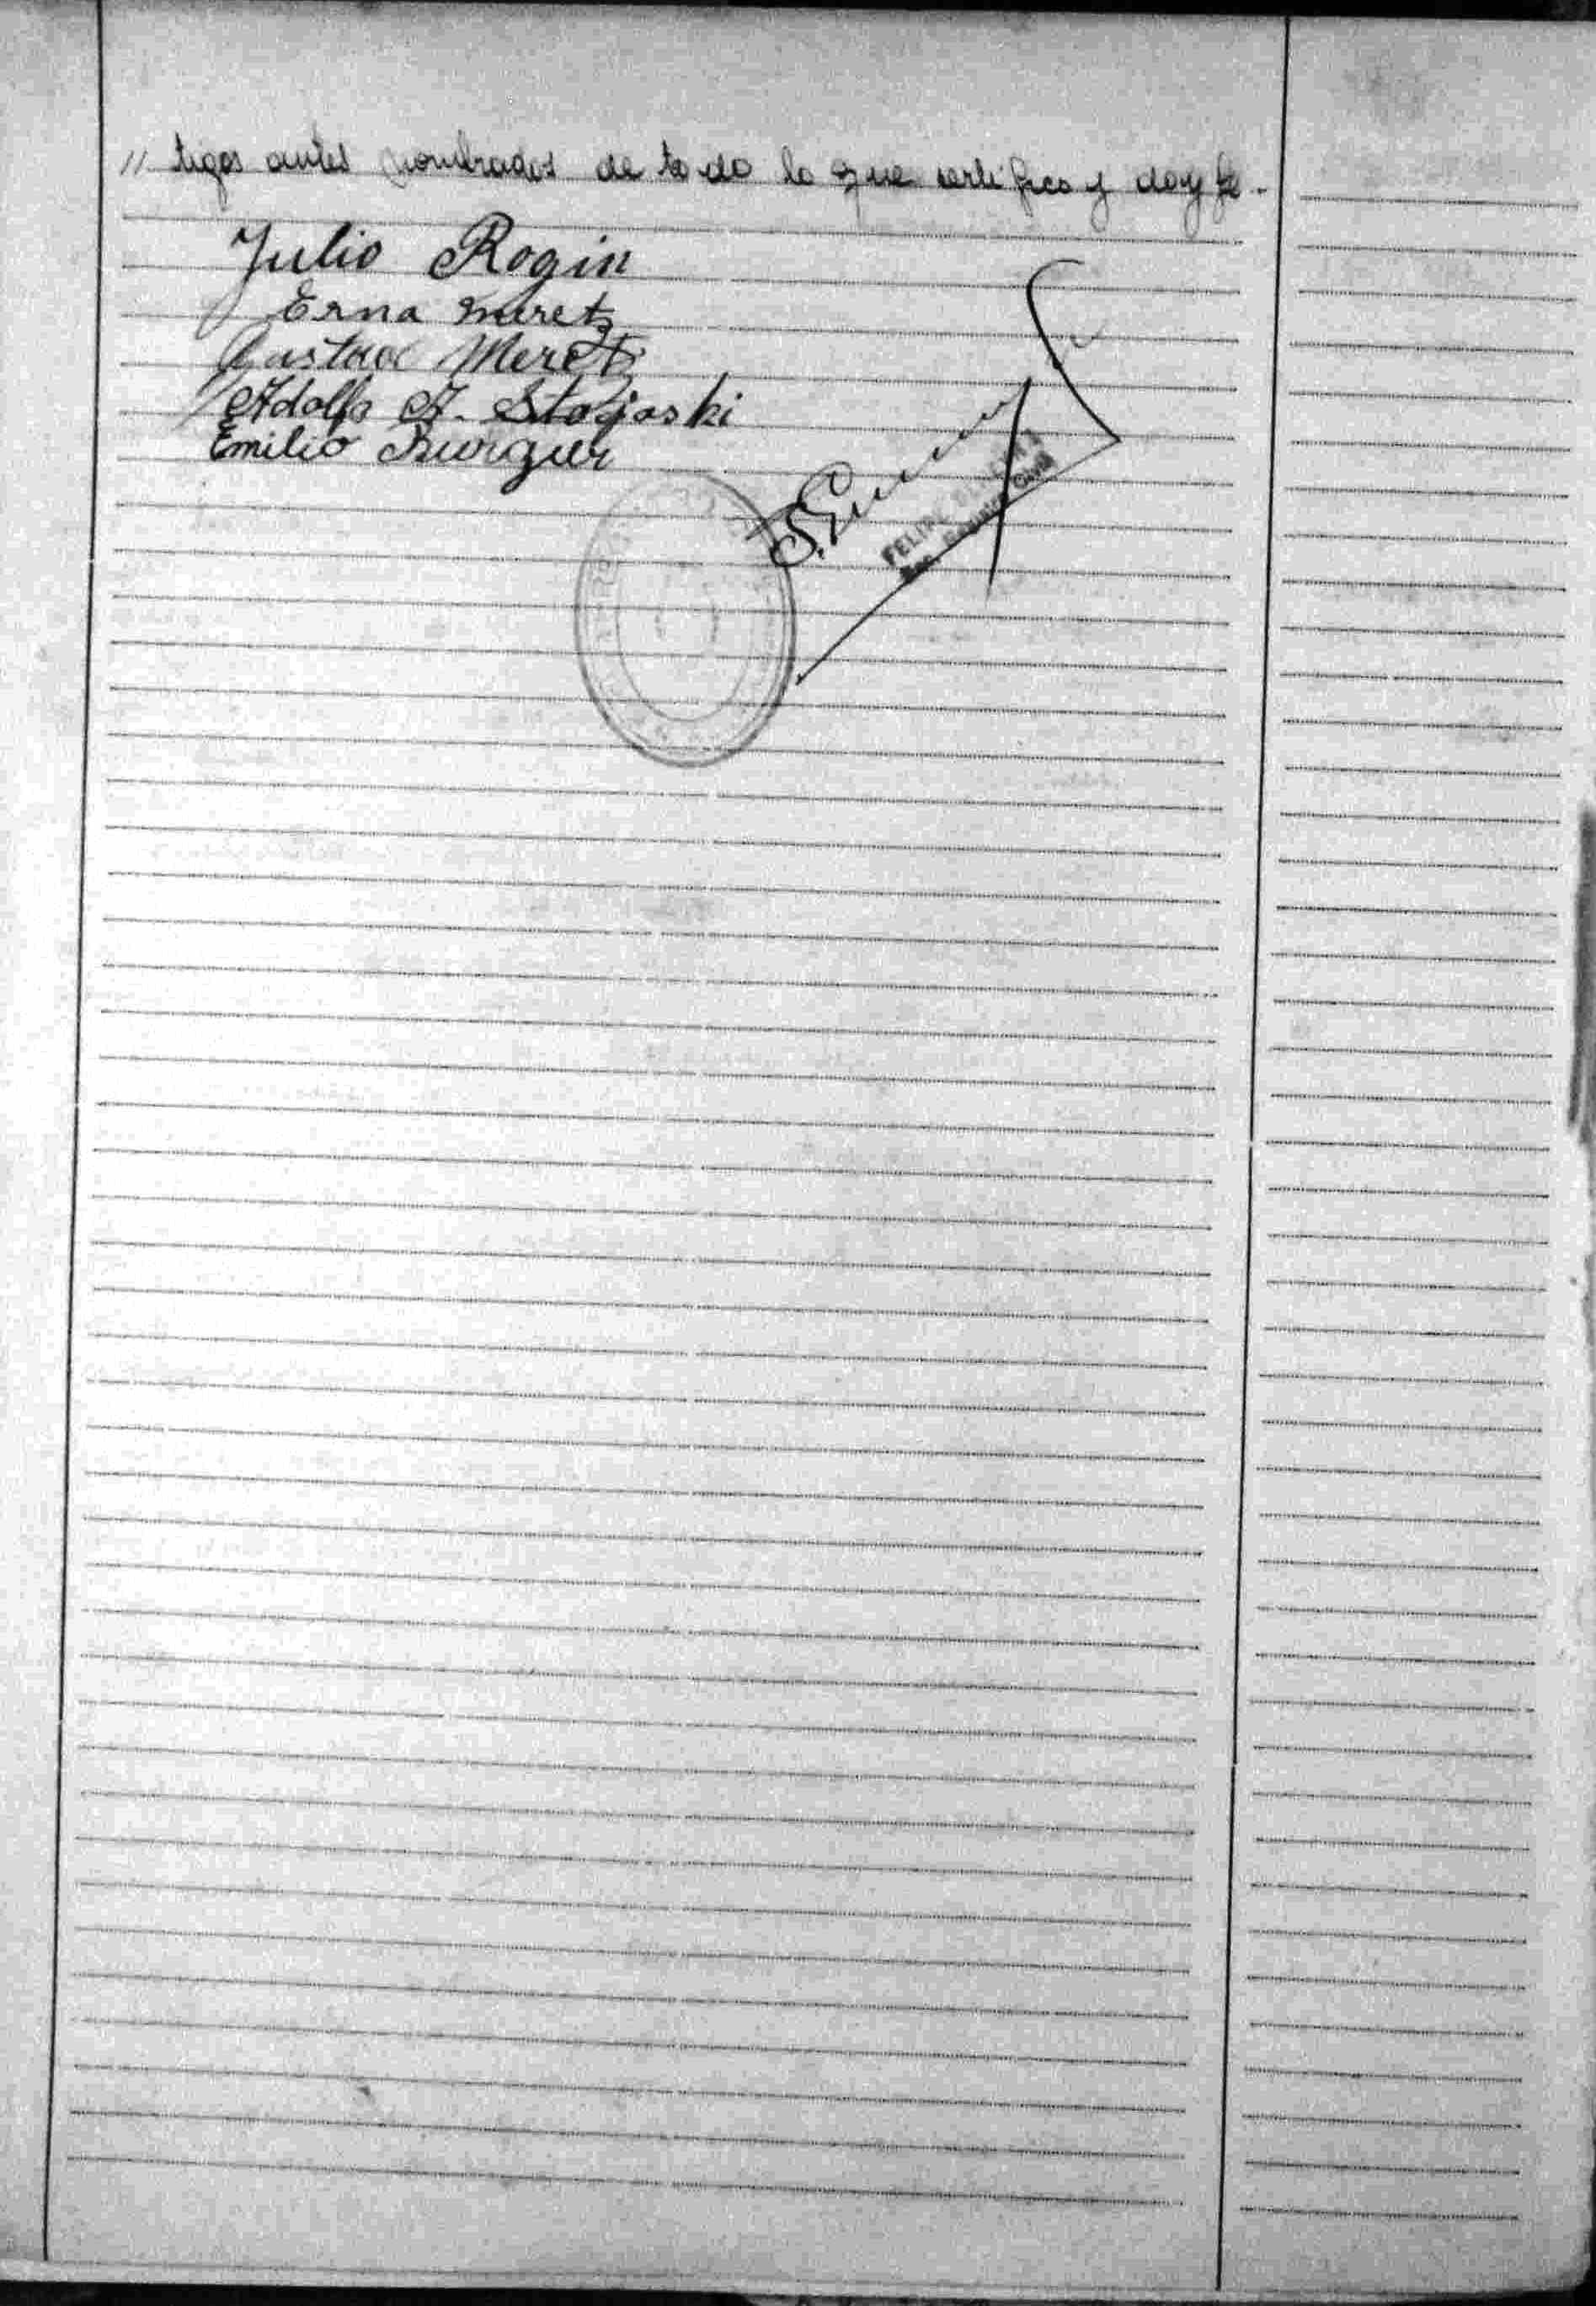 // tigos antes nombrados de todo lo que certifico y doy fe.-
Julio Rogin
Erna Meretz
Gustav Meretz
Adolfo A. Stojaski
Emilio Burguer
FELIPE
Civil